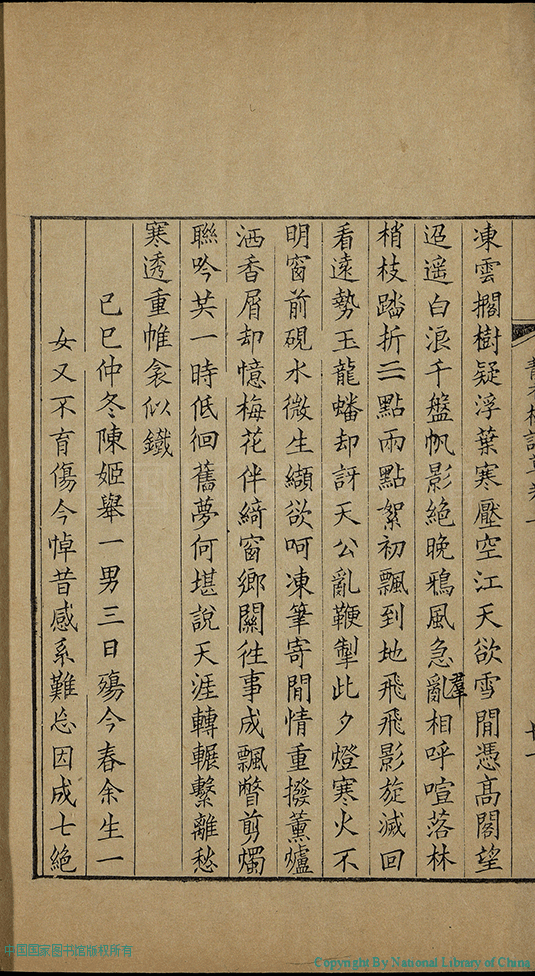 凍雲擱樹疑浮葉寒壓空江天欲雪閒憑高閣望
迢遥白浪千盤帆影絕晚鴉風急亂羣相呼喧落林
梢枝踏折三點兩點絮初飄到地飛飛影旋滅回
看遠勢玉龍蟠却訝天公亂鞭掣此夕燈寒火不
明窗前硯水微生纈欲呵凍筆寄閒情重撥薰爐
洒香屑却憶梅花伴綺窗鄉關往事成飄瞥剪燭
聯吟共一時低徊舊夢何堪說天涯轉輾繫離愁
寒透重帷衾似鐵
己巳仲冬陳姬舉一男三日殤今春余生一
女又不育傷今悼昔感系難忘因成七絕
中国国家图书馆版权所有
Copyright By National Library of China